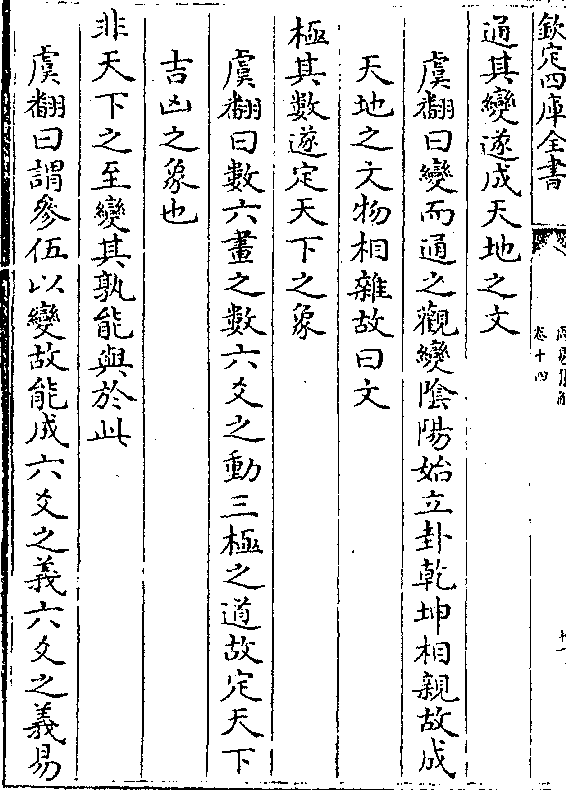 欽定四庫全書
卷十四
通其變遂成天地之文
虞翻曰變而通之觀變隂陽始立卦乾坤相親故成
天地之文物相雜故曰文
極其數遂定天下之象
虞翻曰數六畫之數六爻之動三極之道故定天下
吉凶之象也
非天下之至變其孰能與於此
虞翻曰謂參伍以變故能成六爻之義六爻之義易